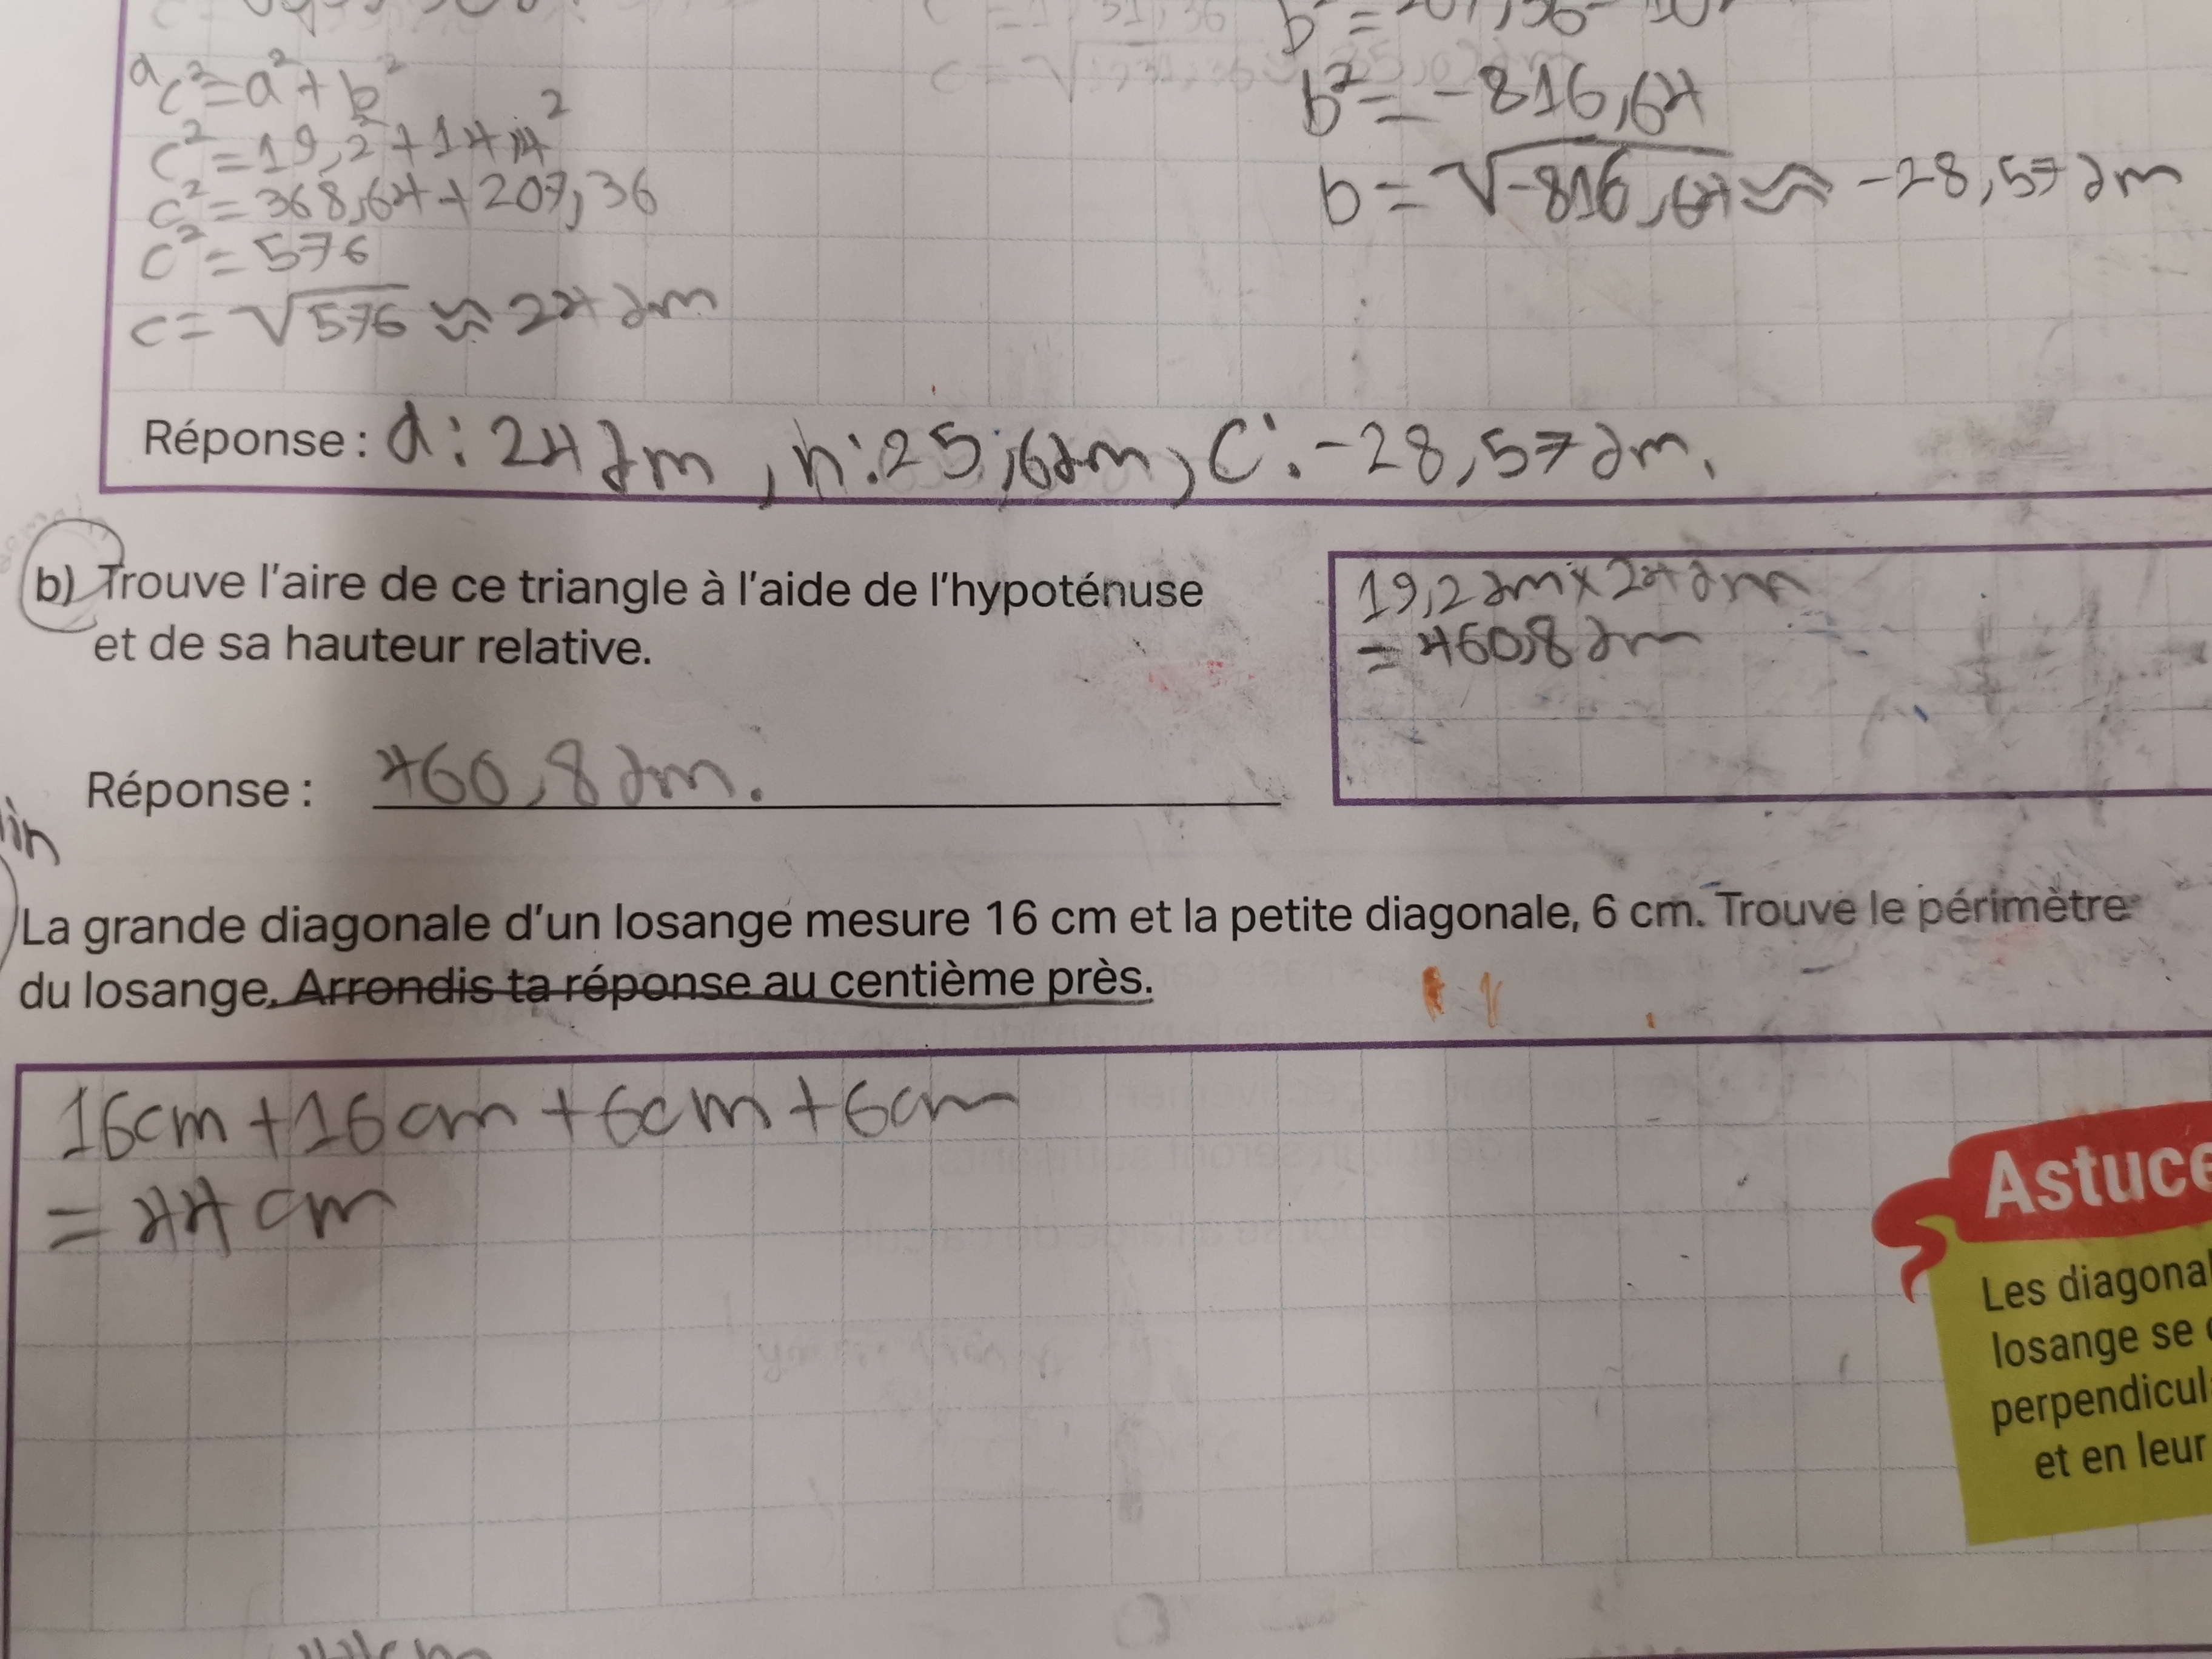 b² = 207,36 - 10
a c² = a² + b²
c² = 19,2 + 14,4²
c² = 368,64 + 207,36
c² = 576
c = √576 ≈ 24 dm
b² = -816,64
b = √-816,64 ≈ -28,57 dm
Réponse : a: 24 dm, h: 25,6 dm, c: -28,57 dm.
b) Trouve l'aire de ce triangle à l'aide de l'hypoténuse
et de sa hauteur relative.
19,2 dm x 24 dm
= 460,8 dm
Réponse : 460,8 dm.
La grande diagonale d'un losange mesure 16 cm et la petite diagonale, 6 cm. Trouve le périmètre
du losange. Arrondis ta réponse au centième près.
16cm + 16cm + 6cm + 6cm
= 44 cm
Astuce
Les diagonal
losange se
perpendicul
et en leur